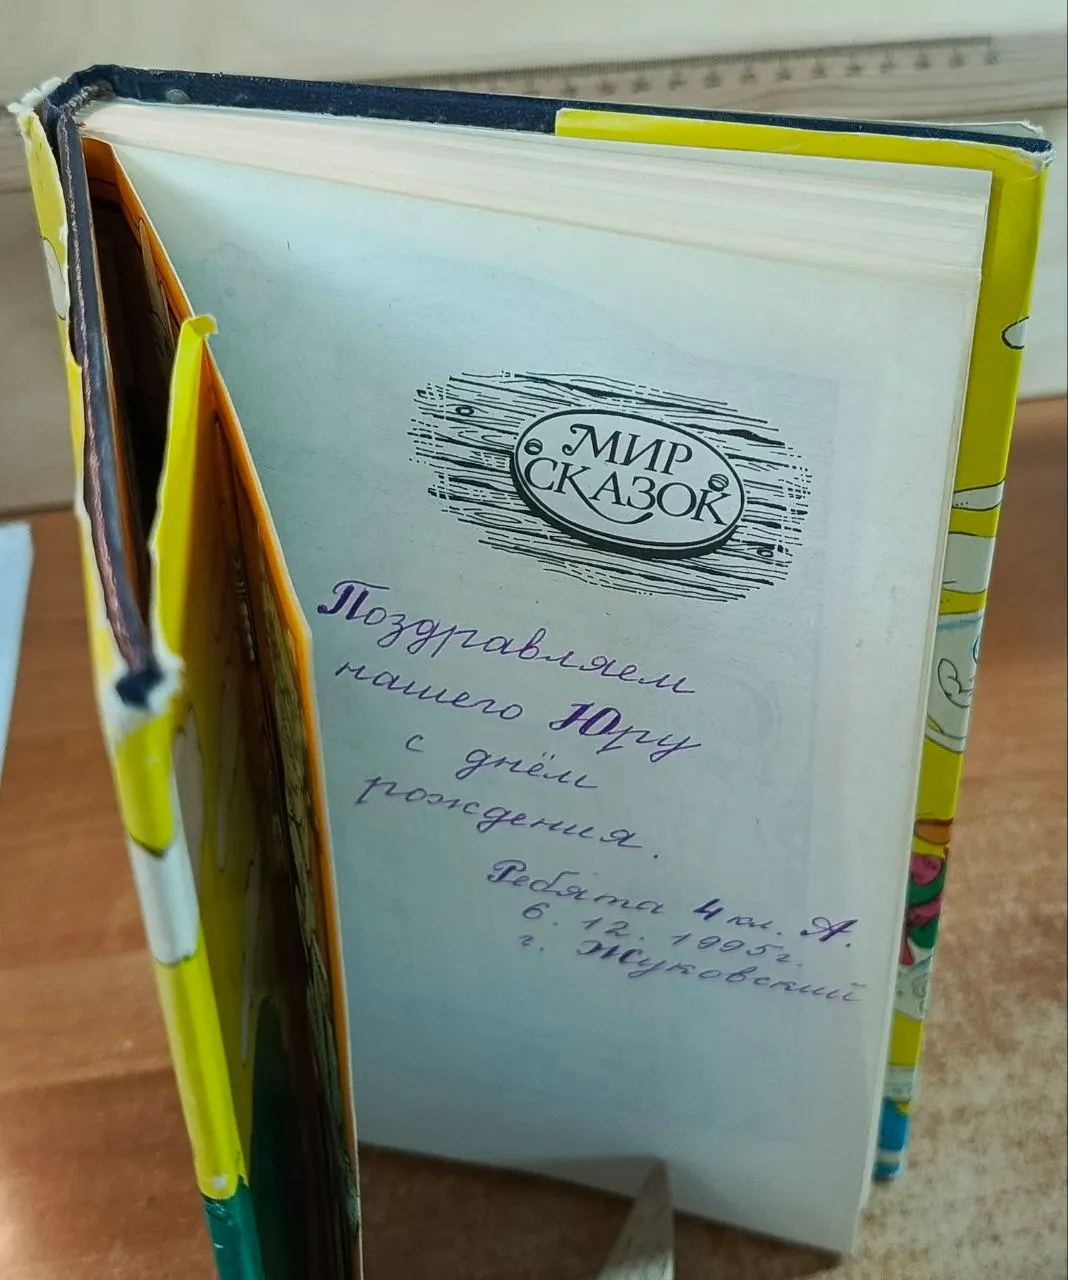 МИР
СКАЗОК
Поздравляем
нашего Юру
с днём
рождения.
Ребята 4 кл. А.
6. 12. 1995г.
г. Жуковский